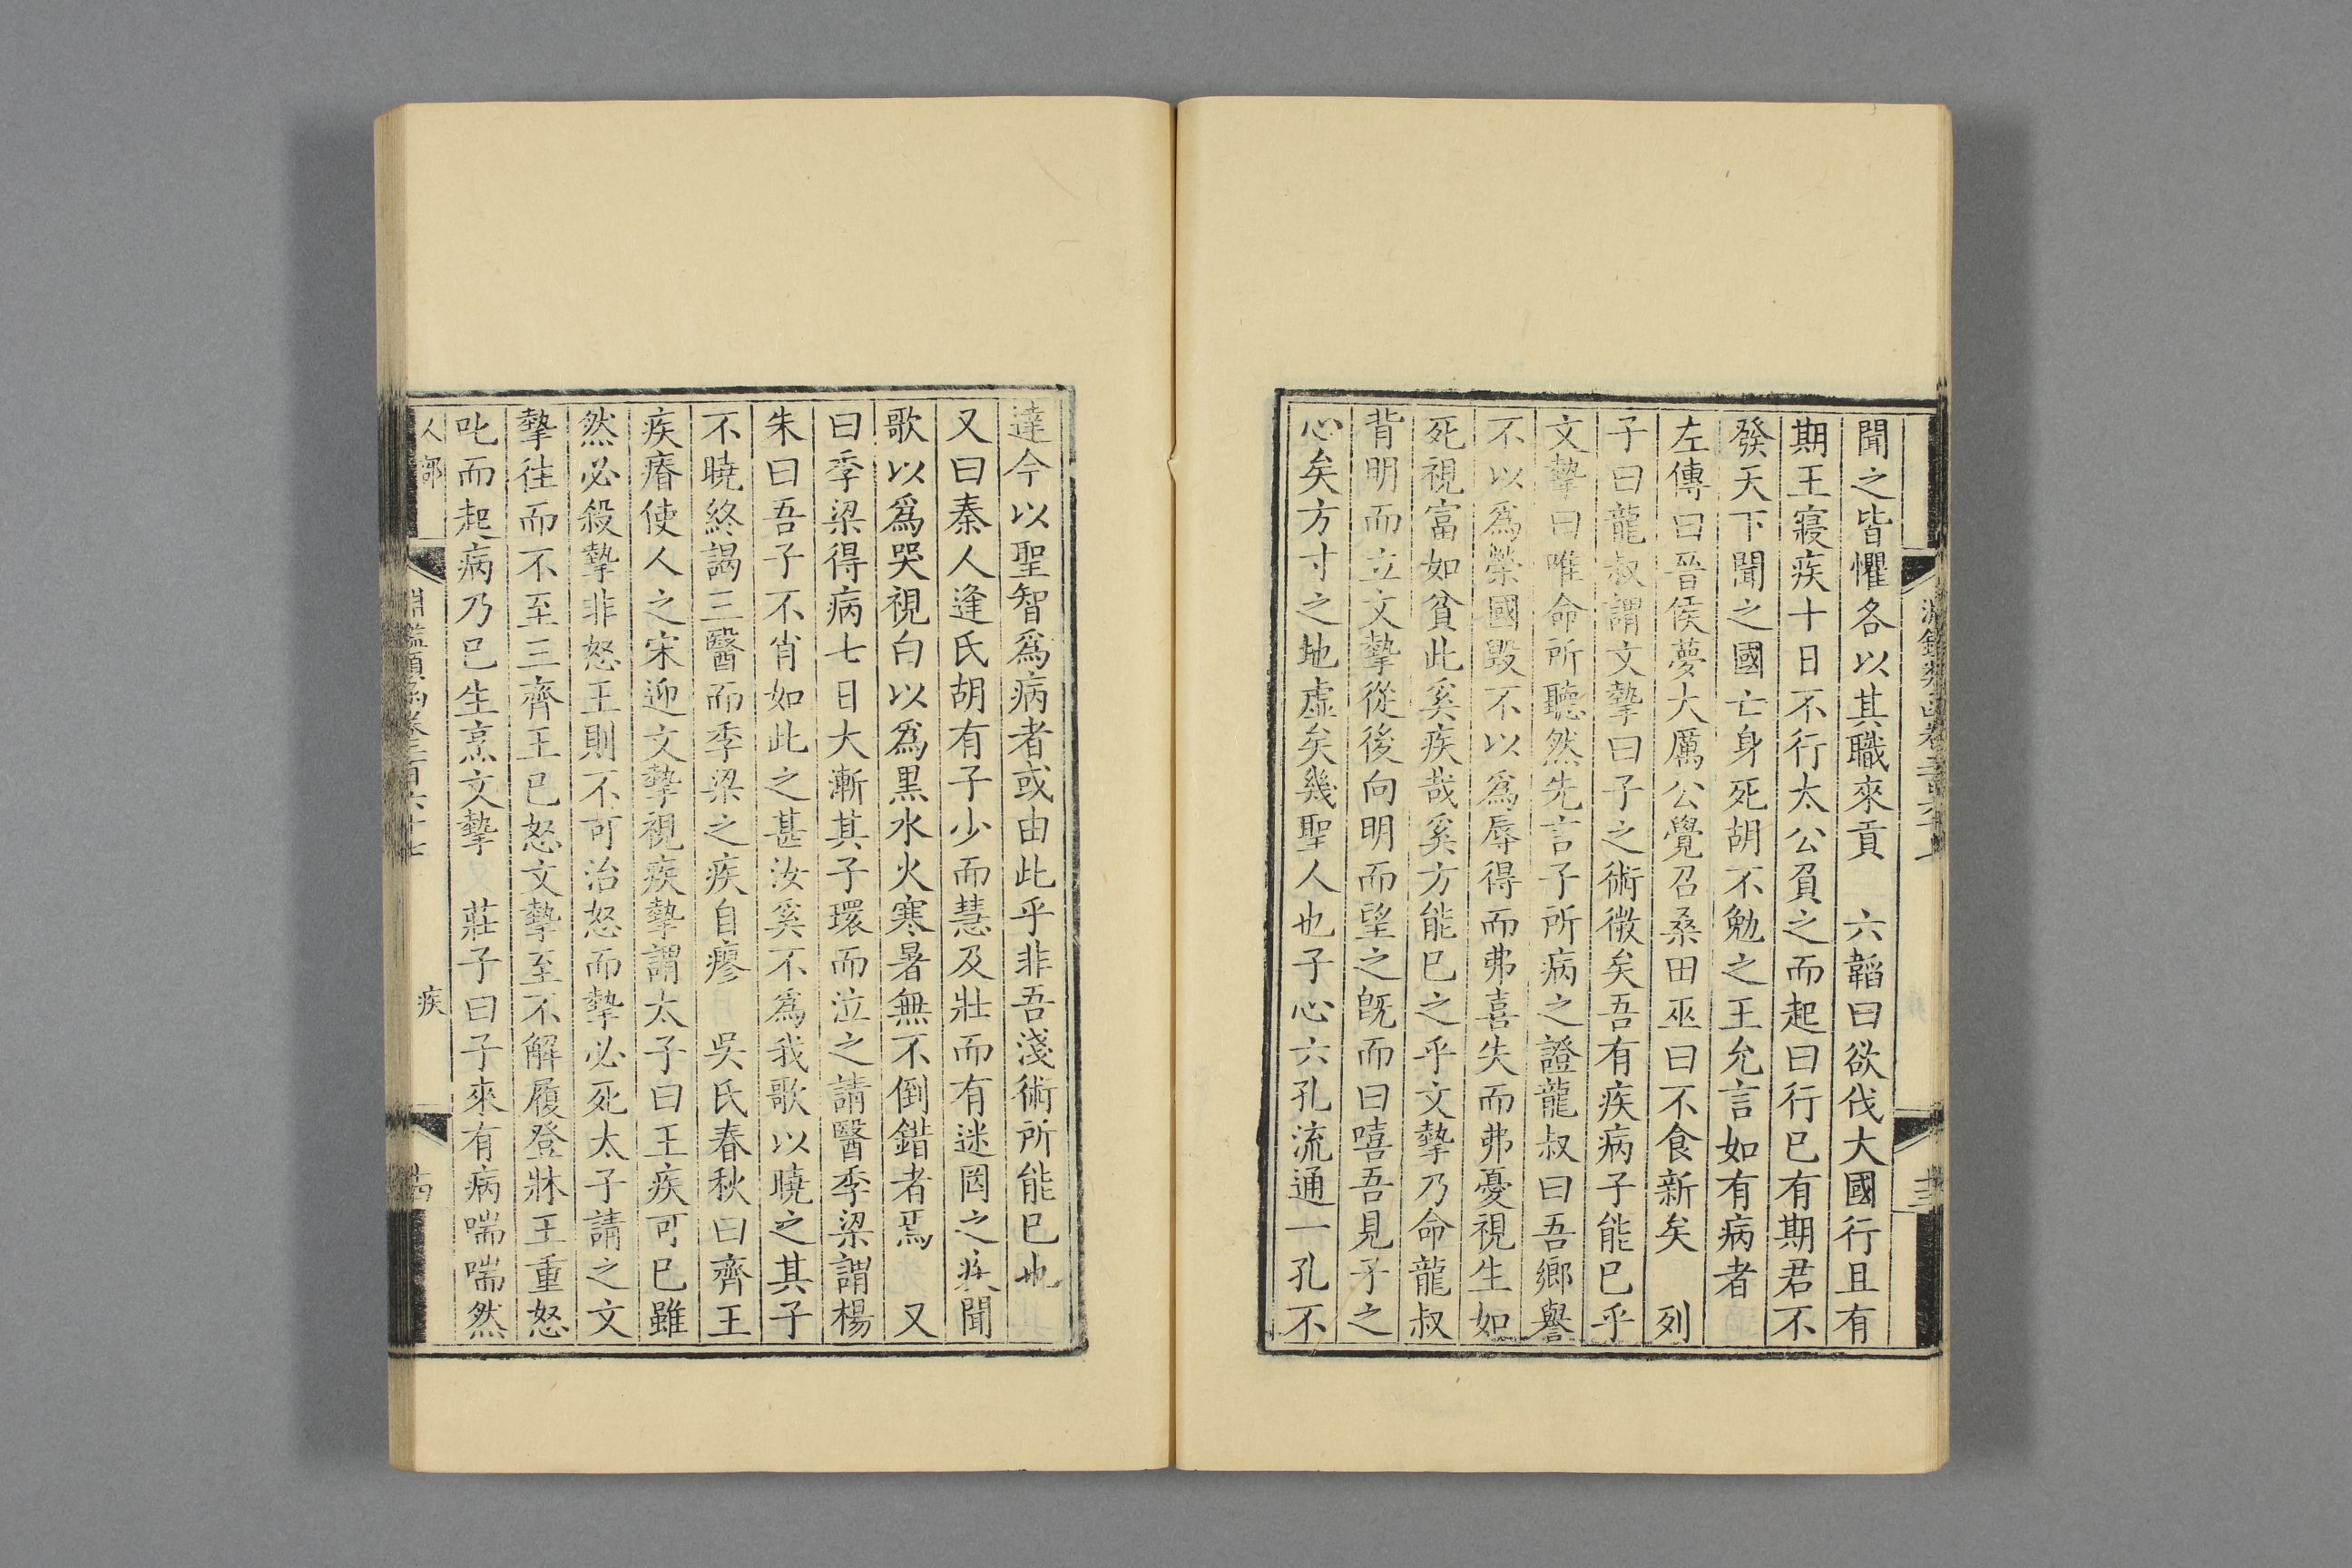 聞之皆懼各以其職來貢　六韜曰欲伐大國行且有
期王寢疾十日不行太公負之而起曰行已有期君不
發天下聞之國亡身死胡不勉之王允言如有病者
左傳曰晉侯夢大厲公覺召桑田巫曰不食新矣　列
子曰龍叔謂文摯曰子之術微矣吾有疾病子能已乎
文摯曰唯命所聽然先言子所病之證龍叔曰吾鄉譽
不以爲榮國毀不以爲辱得而弗喜失而弗憂視生如
死視富如貧此奚疾哉奚方能已之乎文摯乃命龍叔
背明而立文摯從後向明而望之旣而曰嘻吾見子之
心矣方寸之地虛矣幾聖人也子心六孔流通一孔不
達今以聖智爲病者或由此乎非吾淺術所能已也
又曰秦人逢氏胡有子少而慧及壯而有迷罔之疾聞
歌以爲哭視白以爲黒水火寒暑無不倒錯者焉　又
曰季梁得病七日大漸其子環而泣之請醫季梁謂楊
朱曰吾子不肖如此之甚汝奚不爲我歌以曉之其子
不曉終謁三醫而季梁之疾自瘳　吳氏春秋曰齊王
疾瘠使人之宋迎文摯視疾摯謂太子曰王疾可已雖
然必殺摯非怒王則不可治怒而摯必死太子請之文
摯往而不至三齊王已怒文摯至不解履登牀王重怒
叱而起病乃已生烹文摯　莊子曰子來有病喘喘然
人部　淵鑑類函卷二百六十七　疾　十四